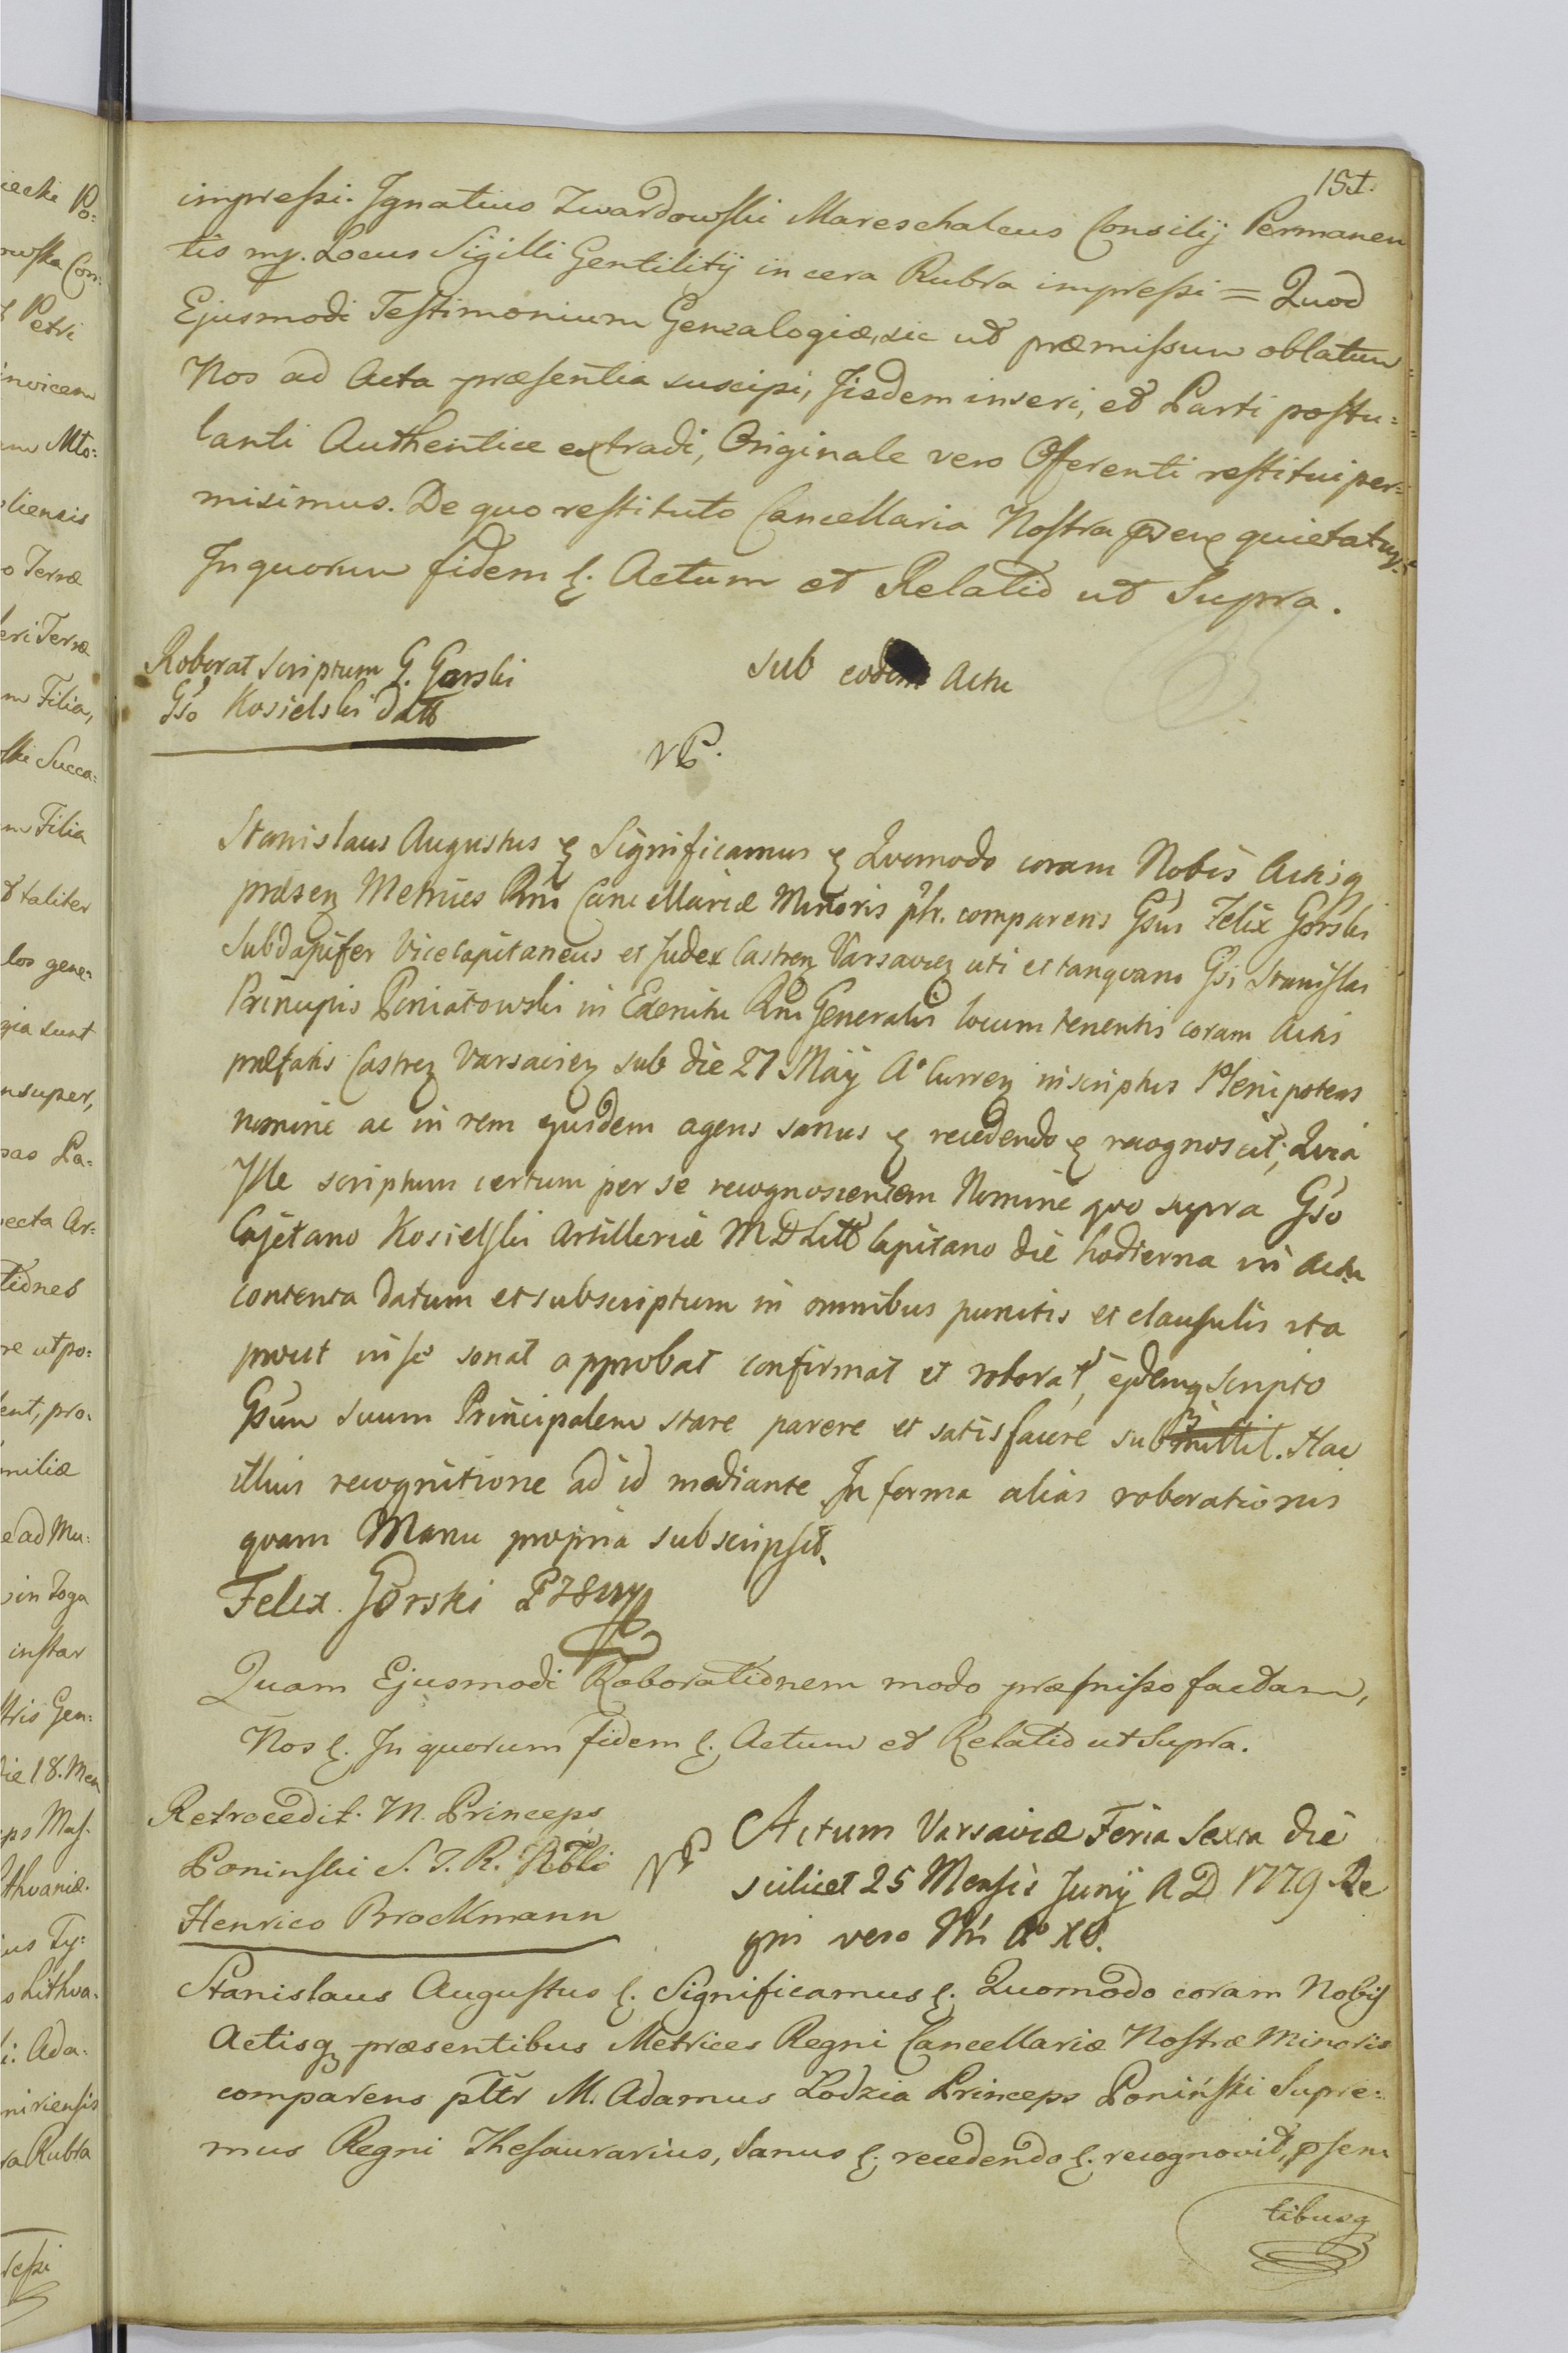 151.
impressi. Ignatius Zwardowski Mareschalcus Consilij Permanen
tis mp. Locus Sigilli Gentilitij in cera Rubra impressi = Quod
Ejusmodi Testimonium Genealogiæ, sic ut præmissum oblatum
Nos ad Acta præsentia suscipi, Jisdem inseri, et Parti postu=
lanti Authentice extradi, Originale vero Offerenti restitui per=
misimus. De quo restituto Cancellaria Nostra quietatur.
In quorum fidem &. Actum et Relatio ut Supra.
Roborat scriptum G. Gorski
Gso Kosielski datt
sub eodem Actu
NP.
Stanislaus Augustus & Significamus & Quomodo coram Nobis Actisq
præsen Metrices Rni Cancellariæ Minoris plr. comparens Gsus Felix Gorski
Subdapifer Vice Capitaneus et Judex Castren Varsavien uti et tanquam Gsi Stanislai
Principis Poniatowski in Exercitu Rni Generalis locum tenentis coram Actis
præfatis Castren Varsavien sub die 27 Maij Ao Curren inscriptus Plenipotens
nomine ac in rem ejusdem agens sanus & recedendo & recognoscit; Quia
Ille scriptum certum per se recognoscentem Nomine quo supra Gso
Cajetano Kosielski Artilleriæ M D Litt Capitano die hodierna in Actu
contenta datum et subscriptum in omnibus punctis et clausulis ita
prout in se sonat approbat confirmat et roborat, ejdemq scripto
Gsum suum Principalem stare parere et satisfacere submittit. Hac
illius recognitione ad id mediante In forma alias roborationis
quam Manu propria subscripsit.
Felix Gorski
Quam Ejusmodi Roborationem modo præmisso factam,
Nos &. In quorum fidem &. Actum et Relatio ut Supra.
Retrocedit. M. Princeps
Poninski S. T. R. Nbli
Henrico Brockmann
NP
Actum Varsaviæ Feria Sexta die
scilicet 25 Mensis Junij A D 1779 Re
gni vero Nri Ao XV.
Stanislaus Augustus &. Significamus &. Quomodo coram Nobis
Actisq præsentibus Metrices Regni Cancellariæ Nostræ Minoris
comparens pltr M. Adamus Lodzia Princeps Poniński Supre=
mus Regni Thesaurarius, Sanus &. recedendo &. recognovit, psen
tibusq